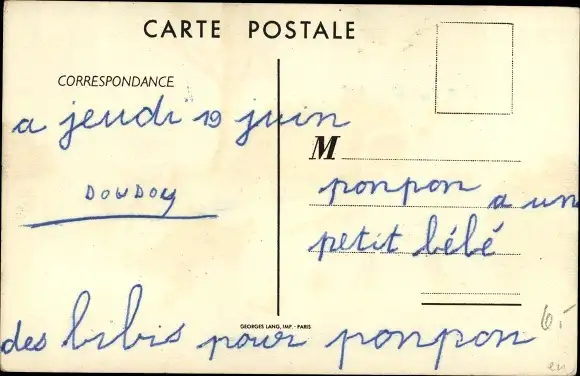 CARTE POSTALE
CORRESPONDANCE
a jeudi 19 juin
DOUDOU
M
ponpon a un
petit bébé
GEORGES LANG, IMP. - PARIS
des bibis pour ponpon
6,-